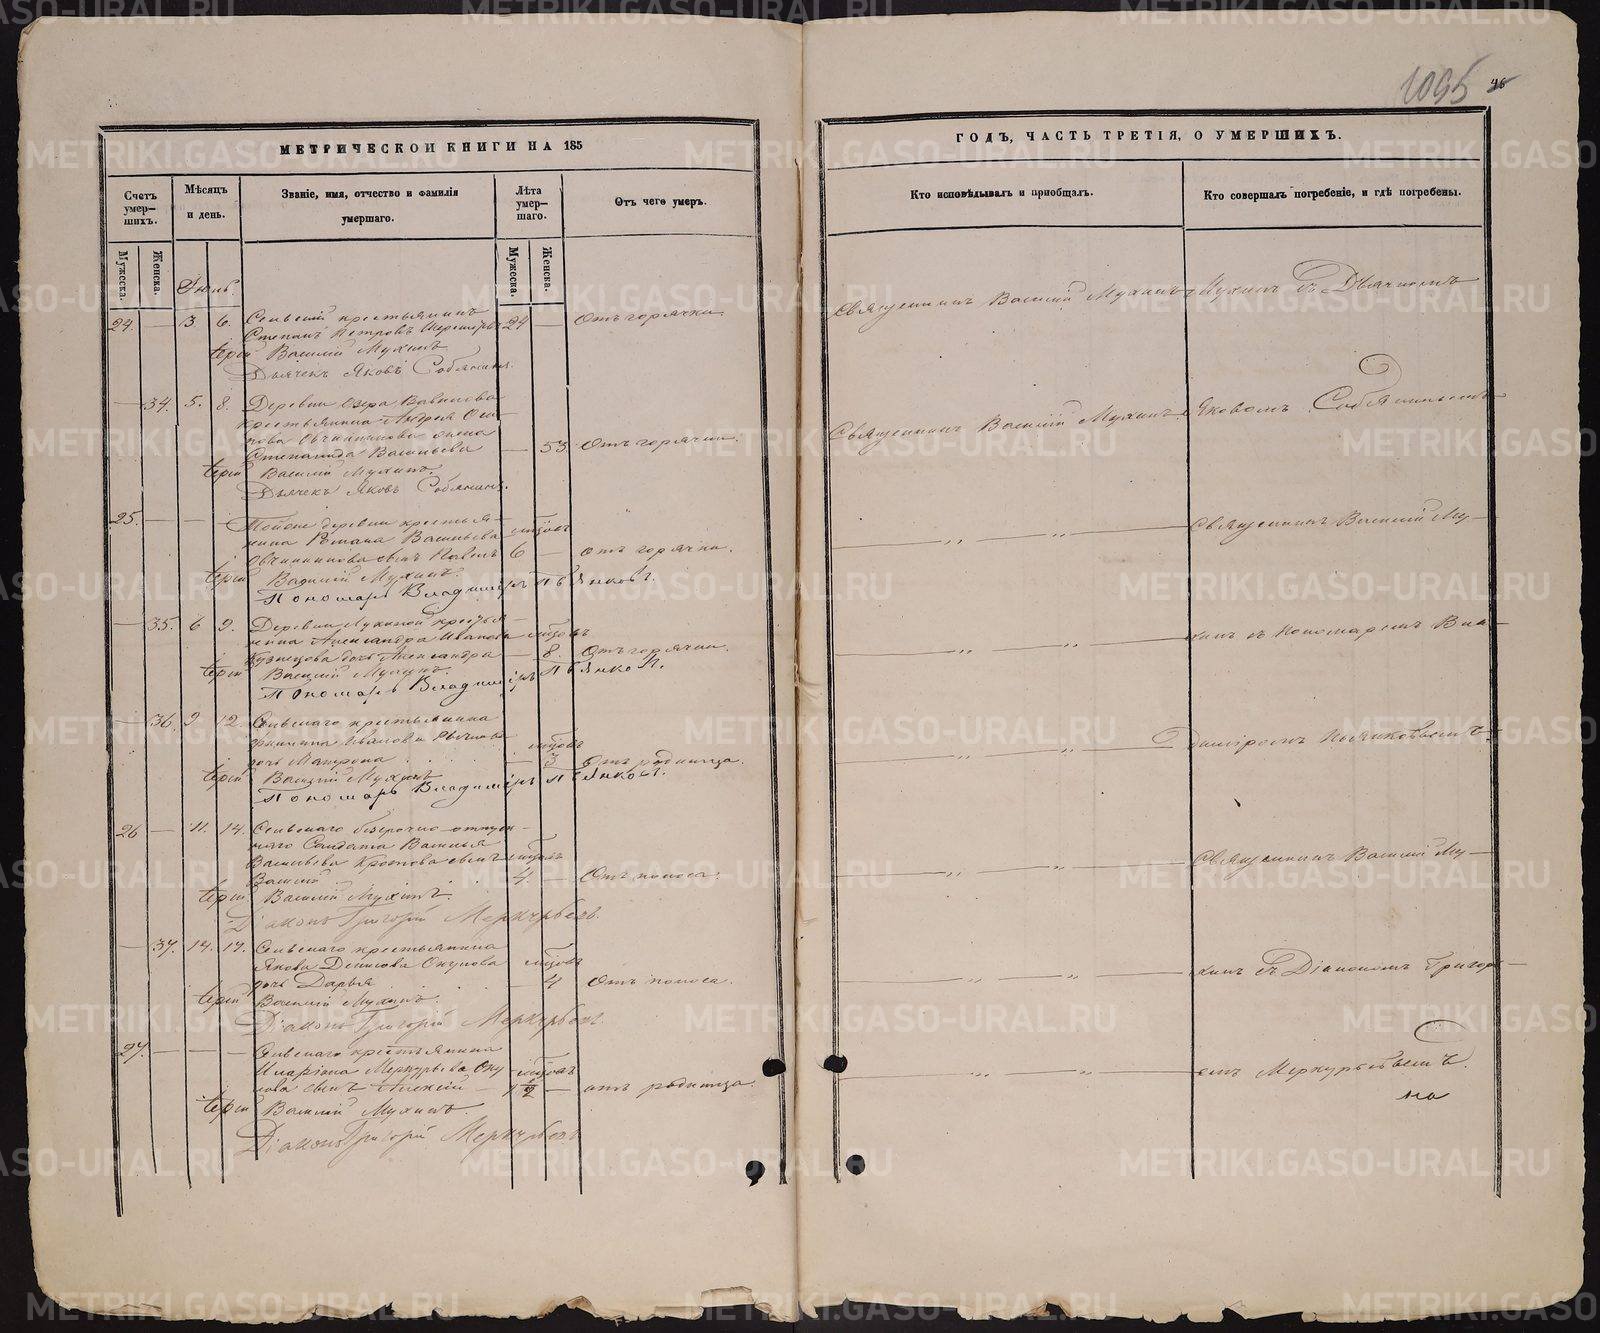 1095
46
МЕТРИЧЕСКОИ КНИГИ НА 185
ГОДЪ, ЧАСТЬ ТРЕТІЯ, О УМЕРШИХЪ.
Счетъ умер-шихъ.
Мѣсяцъ и день.
Званіе, имя, отчество и фамилія умершаго.
Лѣта умер-шаго.
Отъ чего умеръ.
Кто исповѣдывалъ и пріобщалъ.
Кто совершалъ погребеніе, и гдѣ погребены.
Мужеска.
Женска.
Мужеска.
Женска.
24. — 3 6. Сельскій крестьянинъ
Степанъ Петровъ 24 — Отъ горячки
Іерей Василій Мухинъ
Дьячекъ Яковъ Собянинъ.
— 34. 5. 8. Деревни Озера Вавилова
крестьянина Андрея Оси-
пова Овчинникова жена
Степанида Васильева — 53 Отъ горячки.
Іерей Василій Мухинъ.
Дьячекъ Яковъ Собянинъ.
25. — — — Тойже деревни крестья-
нина Романа Васильева мѣсѣцъ
Овчинникова сынъ Павелъ 6 — отъ горячки.
Іерей Василій Мухинъ.
Пономарь Владиміръ Пьянковъ.
— 35. 6 9. Деревни крестья-
нина Александра Иванова
Кузнецова дочь Александра — 8. Отъ горячки.
Іерей Василій Мухинъ.
Пономарь Владиміръ Пьянковъ.
— 36 9 12. Сельскаго крестьянина
Филипа Иванова
дочь Матрона — 3 Отъ родимца.
Іерей Василій Мухинъ
Пономарь Владиміръ Пьянковъ.
26 — 11. 14. Сельскаго безсрочно-отпуск-
наго Солдата Василья
Васильева Кротова сынъ
Василій 4. — Отъ поноса.
Іерей Василій Мухинъ.
Діаконъ Григорій Меркурьевъ.
— 37. 14. 17. Сельскаго крестьянина
Якова Денисова Окулова
дочь Дарья — 4 Отъ поноса.
Іерей Василій Мухинъ.
Діаконъ Григорій Меркурьевъ.
27. — — — Сельскаго крестьянина
Иларіона Меркурьева Оку
лова сынъ Алексій 1 1/2 — отъ родимца.
Іерей Василій Мухинъ.
Діаконъ Григорій Меркурьевъ
Священникъ Василій Мухинъ
Священникъ Василій Мухинъ
Мухинъ съ Дьячкомъ
Яковомъ Собянинымъ
Священникъ Василій Му-
хинъ съ Пономаремъ Вла-
диміромъ Пьянковымъ
Священникъ Василій Му-
хинъ съ Діакономъ Григорі-
емъ Меркурьевымъ.
на